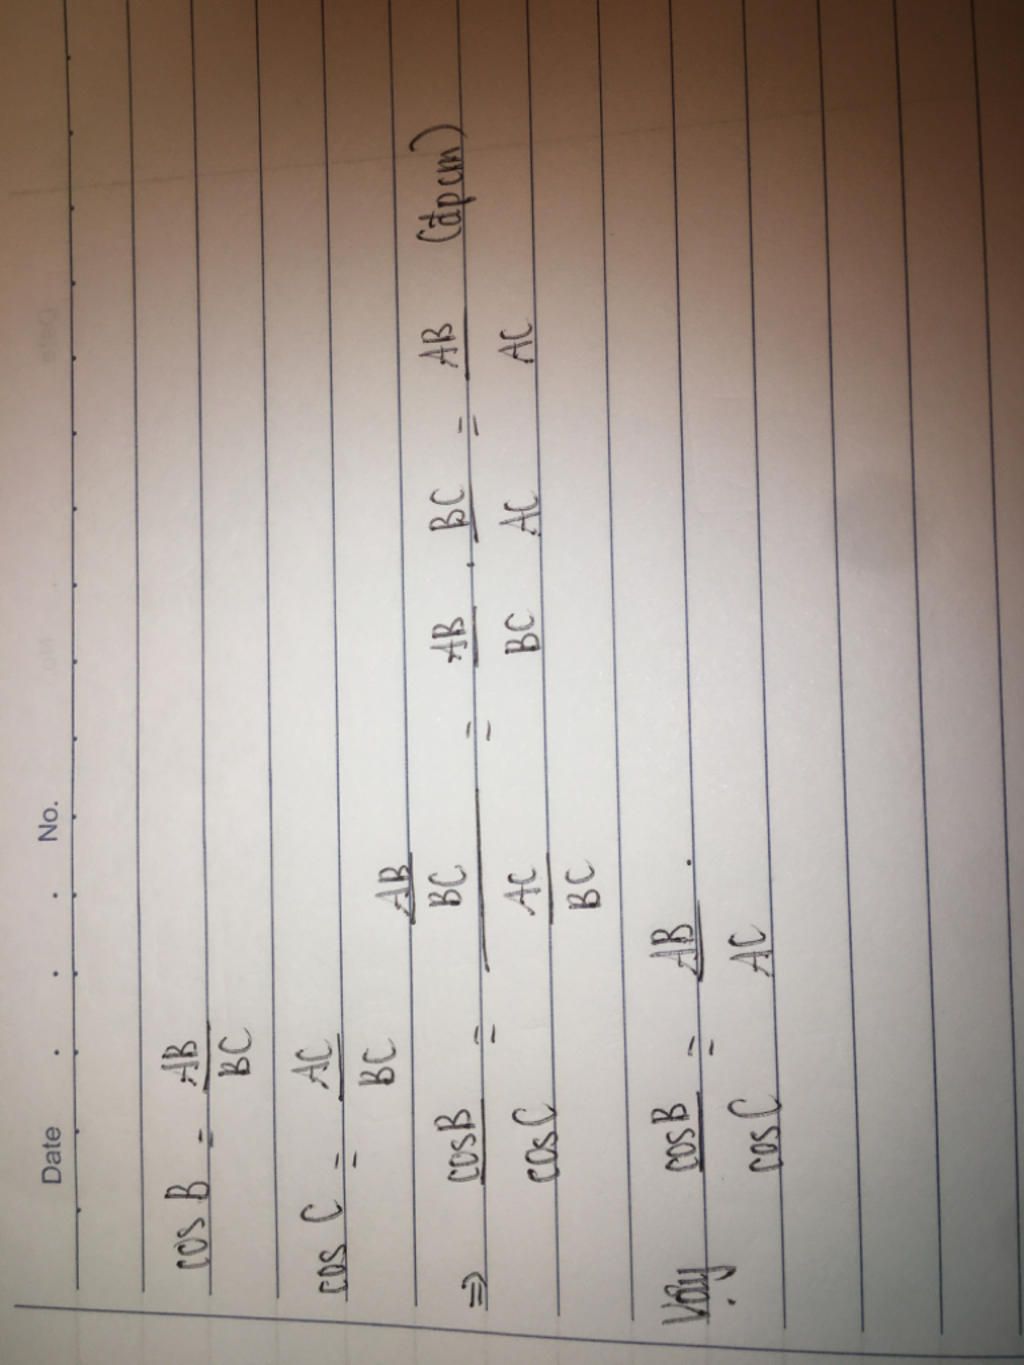 Date . . . No.
cos B = AB/BC
cos C = AC/BC
⇒ cosB/cosC = (AB/BC)/(AC/BC) = AB/BC . BC/AC = AB/AC (đpcm)
Vậy cosB/cosC = AB/AC .